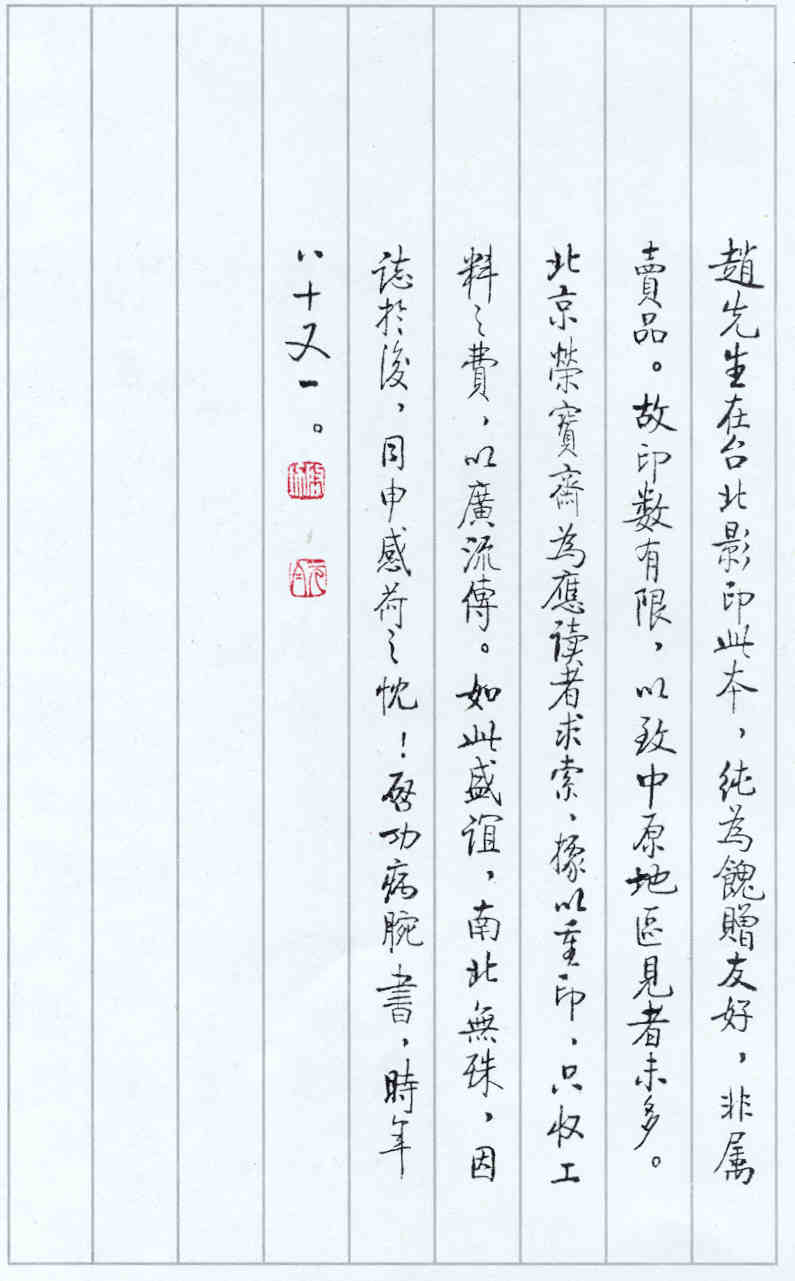 趙先生在台北影印此本，純為餽贈友好，非属
賣品。故印数有限，以致中原地區見者未多。
北京榮寳齋為應读者求索、據以重印，只收工
料之費，以廣流傳。如此盛誼，南北無殊，因
誌於後，用申感荷之忱！啓功病腕書，時年
八十又一。